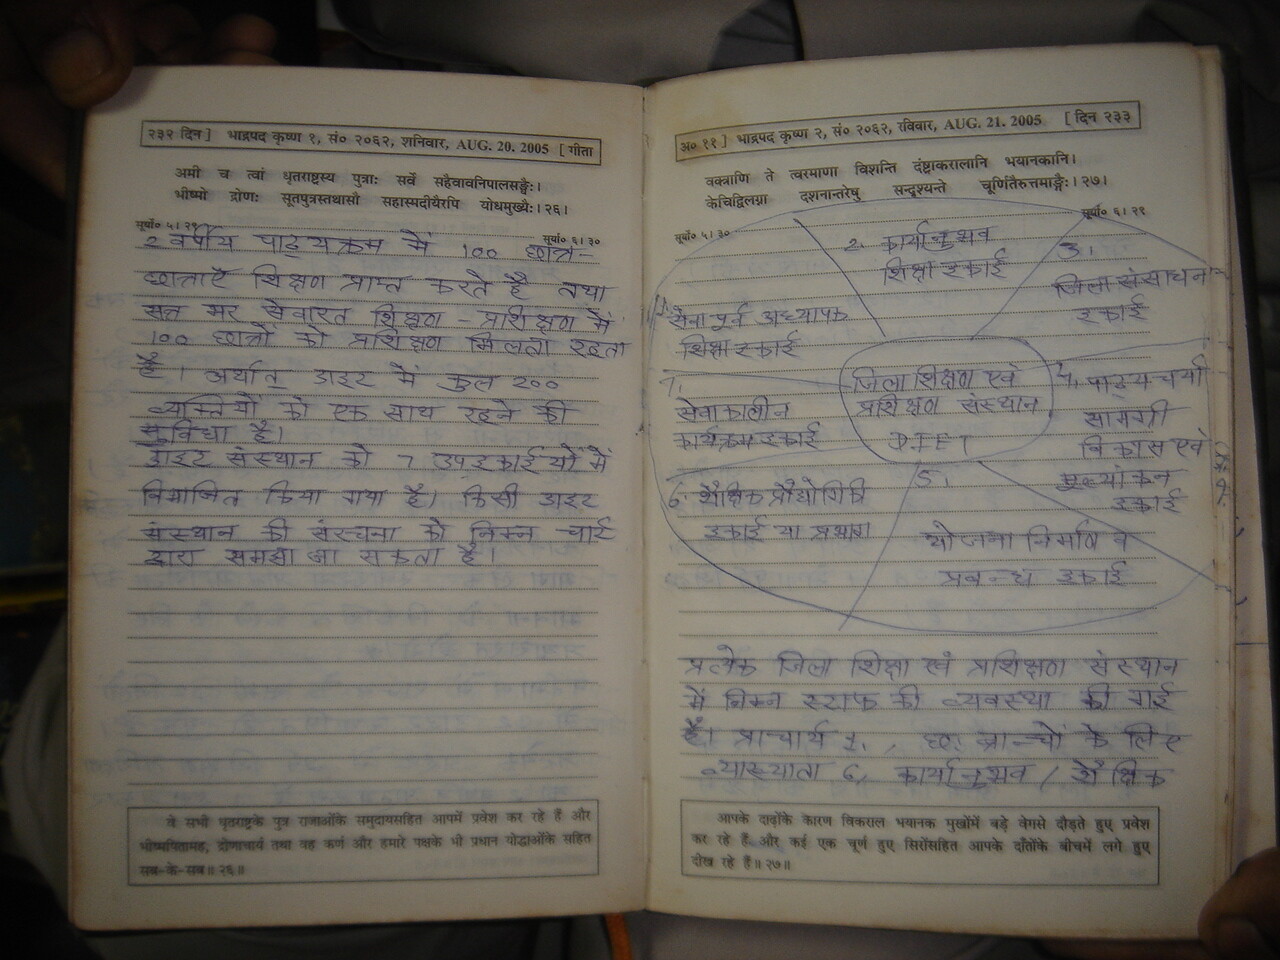 २३२ दिन ] भाद्रपद कृष्ण १, सं० २०६२, शनिवार, AUG. 20. 2005 [ गीता
अमी च त्वां धृतराष्ट्रस्य पुत्राः सर्वे सहैवावनिपालसङ्घैः।
भीष्मो द्रोणः सूतपुत्रस्तथासौ सहास्मदीयैरपि योधमुख्यैः।२६।
सूर्यो० ५।२९ सूर्या० ६।३०
२ वर्षीय पाठ्यक्रम में 100 छात्र-
छात्राएँ शिक्षण प्राप्त करते है तथा
सत्र भर सेवारत शिक्षण-प्रशिक्षण में
100 छात्रों को प्रशिक्षण मिलता रहता
है। अर्थात् डाइट में कुल 200
व्यक्तियों को एक साथ रहने की
सुविधा है।
डाइट संस्थान को 7 उपइकाईयों में
विभाजित किया गया है। किसी डाइट
संस्थान की संरचना को निम्न चार्ट
द्वारा समझा जा सकता है।
वे सभी धृतराष्ट्रके पुत्र राजाओंके समुदायसहित आपमें प्रवेश कर रहे हैं और
भीष्मपितामह, द्रोणाचार्य तथा वह कर्ण और हमारे पक्षके भी प्रधान योद्धाओंके सहित
सब-के-सब॥२६॥
अ० ११ ] भाद्रपद कृष्ण २, सं० २०६२, रविवार, AUG. 21. 2005 [ दिन २३३
वक्त्राणि ते त्वरमाणा विशन्ति दंष्ट्राकरालानि भयानकानि।
केचिद्विलग्ना दशनान्तरेषु सन्दृश्यन्ते चूर्णितैरुत्तमाङ्गैः।२७।
सूर्यो० ५।३० सूर्या० ६।२९
1. सेवापूर्व अध्यापक
शिक्षा इकाई
2. कार्यानुभव
शिक्षा इकाई
3.
जिला संसाधन
इकाई
जिला शिक्षण एवं
प्रशिक्षण संस्थान
DIET
4. पाठ्यचर्या
सामग्री
विकास एवं
मूल्यांकन
इकाई
7.
सेवाकालीन
कार्यक्रम इकाई
6. शैक्षिक प्रौद्योगिकी
इकाई या प्रभाग
5.
योजना निर्माण व
प्रबन्ध इकाई
प्रत्येक जिला शिक्षा एवं प्रशिक्षण संस्थान
में निम्न स्टाफ की व्यवस्था की गई
है। प्राचार्य 1, छः ब्रान्चों के लिए
व्याख्याता 6, कार्यानुभव / शैक्षिक
आपके दाढ़ोंके कारण विकराल भयानक मुखोंमें बड़े वेगसे दौड़ते हुए प्रवेश
कर रहे हैं और कई एक चूर्ण हुए सिरोंसहित आपके दाँतोंके बीचमें लगे हुए
दीख रहे हैं॥२७॥